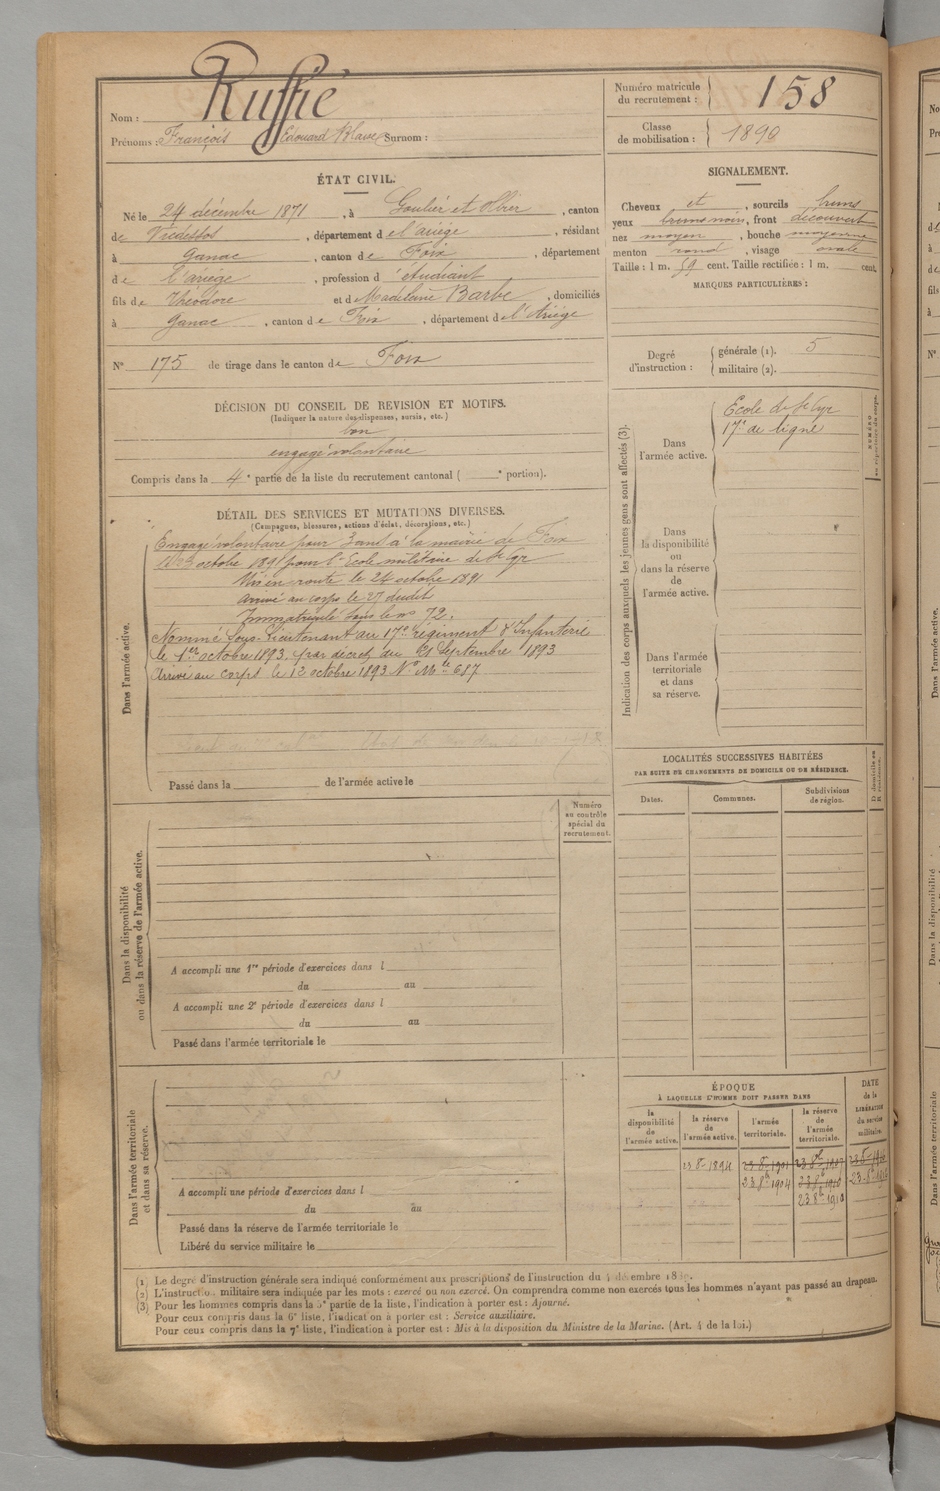 Nom : Ruffié
Prénoms : François Edouard Surnom :
Numéro matricule du recrutement : 158
Classe de mobilisation : 1890
ÉTAT CIVIL.
Né le 24 décembre 1871, à Goulier et Olbier, canton
de Vicdessos, département de l'ariège, résidant
à Ganac, canton de Foix, département
de l'ariège, profession d'étudiant
fils de Théodore et de Madeleine Barbe, domiciliés
à Ganac, canton de Foix, département de l'Ariège
N° 175 de tirage dans le canton de Foix
SIGNALEMENT.
Cheveux et, sourcils bruns
yeux bruns noirs, front découvert
nez moyen, bouche moyenne
menton rond, visage ovale
Taille : 1 m. 59 cent. Taille rectifiée : 1 m. cent.
MARQUES PARTICULIÈRES :
Degré d'instruction : générale (1). 5
militaire (2).
DÉCISION DU CONSEIL DE REVISION ET MOTIFS.
(Indiquer la nature des dispenses, sursis, etc.)
bon
engagé volontaire
Compris dans la 4e partie de la liste du recrutement cantonal ( e portion).
DÉTAIL DES SERVICES ET MUTATIONS DIVERSES.
(Campagnes, blessures, actions d'éclat, décorations, etc.)
Dans l'armée active.
Engagé volontaire pour 3 ans à la mairie de Foix
le 23 octobre 1891 pour l'Ecole militaire de St Cyr
Mis en route le 24 octobre 1891
Arrivé au corps le 27 dudit
Immatriculé sous le no 72.
Nommé Sous-Lieutenant au 17e régiment d'Infanterie
le 1er octobre 1893, par décret du 21 Septembre 1893
Arrivé au corps le 12 octobre 1893 No Mle 687
Passé dans la de l'armée active le
Indication des corps auxquels les jeunes gens sont affectés (3).
Dans l'armée active.
Ecole de St Cyr
17e de ligne
NUMÉRO au répertoire du corps.
Dans la disponibilité ou dans la réserve de l'armée active.
Dans l'armée territoriale et dans sa réserve.
LOCALITÉS SUCCESSIVES HABITÉES
PAR SUITE DE CHANGEMENTS DE DOMICILE OU DE RÉSIDENCE.
Dates. Communes. Subdivisions de région. D. domicile ou R. résidence.
Dans la disponibilité ou dans la réserve de l'armée active.
Numéro au contrôle spécial du recrutement.
A accompli une 1re période d'exercices dans l
du au
A accompli une 2e période d'exercices dans l
du au
Passé dans l'armée territoriale le
Dans l'armée territoriale et dans sa réserve.
A accompli une période d'exercices dans l
du au
Passé dans la réserve de l'armée territoriale le
Libéré du service militaire le
ÉPOQUE
À LAQUELLE L'HOMME DOIT PASSER DANS
la disponibilité de l'armée active. la réserve de l'armée active. l'armée territoriale. la réserve de l'armée territoriale. DATE de la LIBÉRATION du service militaire.
23 8e 1894 23 8e 1901 23 8e 1907
23 8e 1904 23 8e 1910
23 8e 1910
(1) Le degré d'instruction générale sera indiqué conformément aux prescriptions de l'instruction du 4 décembre
(2) L'instruction militaire sera indiquée par les mots : exercé ou non exercé. On comprendra comme non exercés tous les hommes n'ayant pas passé au drapeau.
(3) Pour les hommes compris dans la 5e partie de la liste, l'indication à porter est : Ajourné.
Pour ceux compris dans la 6e liste, l'indication à porter est : Service auxiliaire.
Pour ceux compris dans la 7e liste, l'indication à porter est : Mis à la disposition du Ministre de la Marine. (Art. 4 de la loi.)